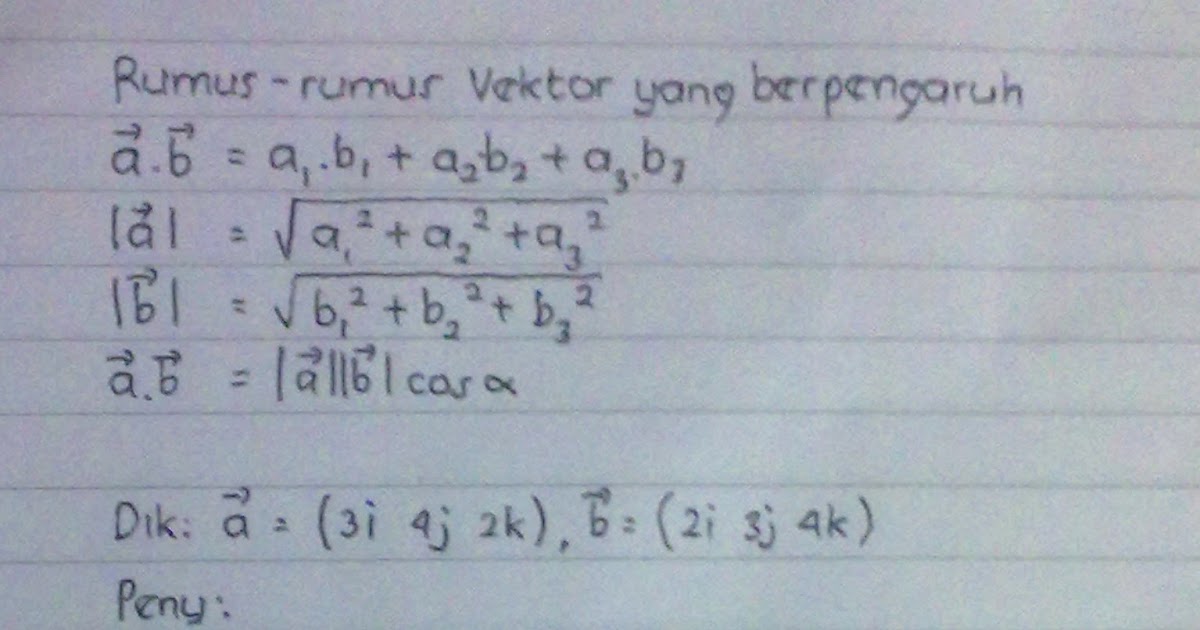 Rumus-rumus Vektor yang berpengaruh
a⃗.b⃗ = a₁.b₁ + a₂b₂ + a₃.b₃
|a⃗| = √(a₁² + a₂² + a₃²)
|b⃗| = √(b₁² + b₂² + b₃²)
a⃗.b⃗ = |a⃗||b⃗| cos α
Dik: a⃗ = (3i 4j 2k), b⃗ = (2i 3j 4k)
Peny: